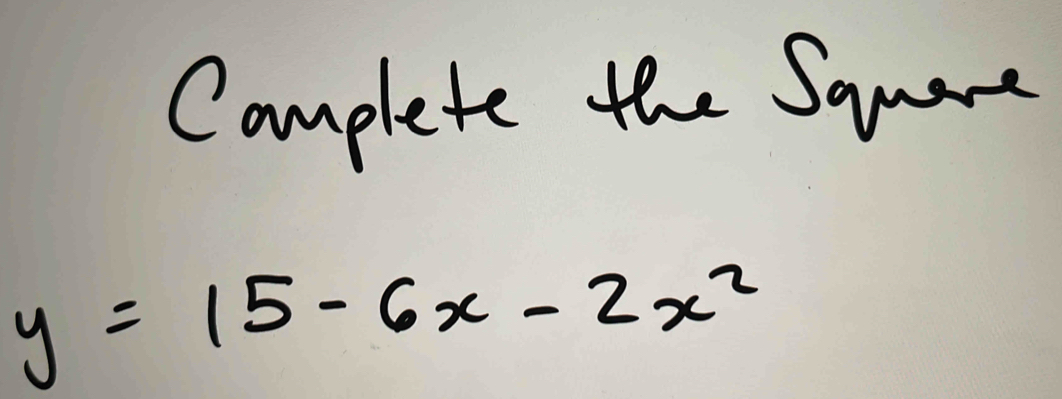 Complete the Square
y = 15 - 6x - 2x²